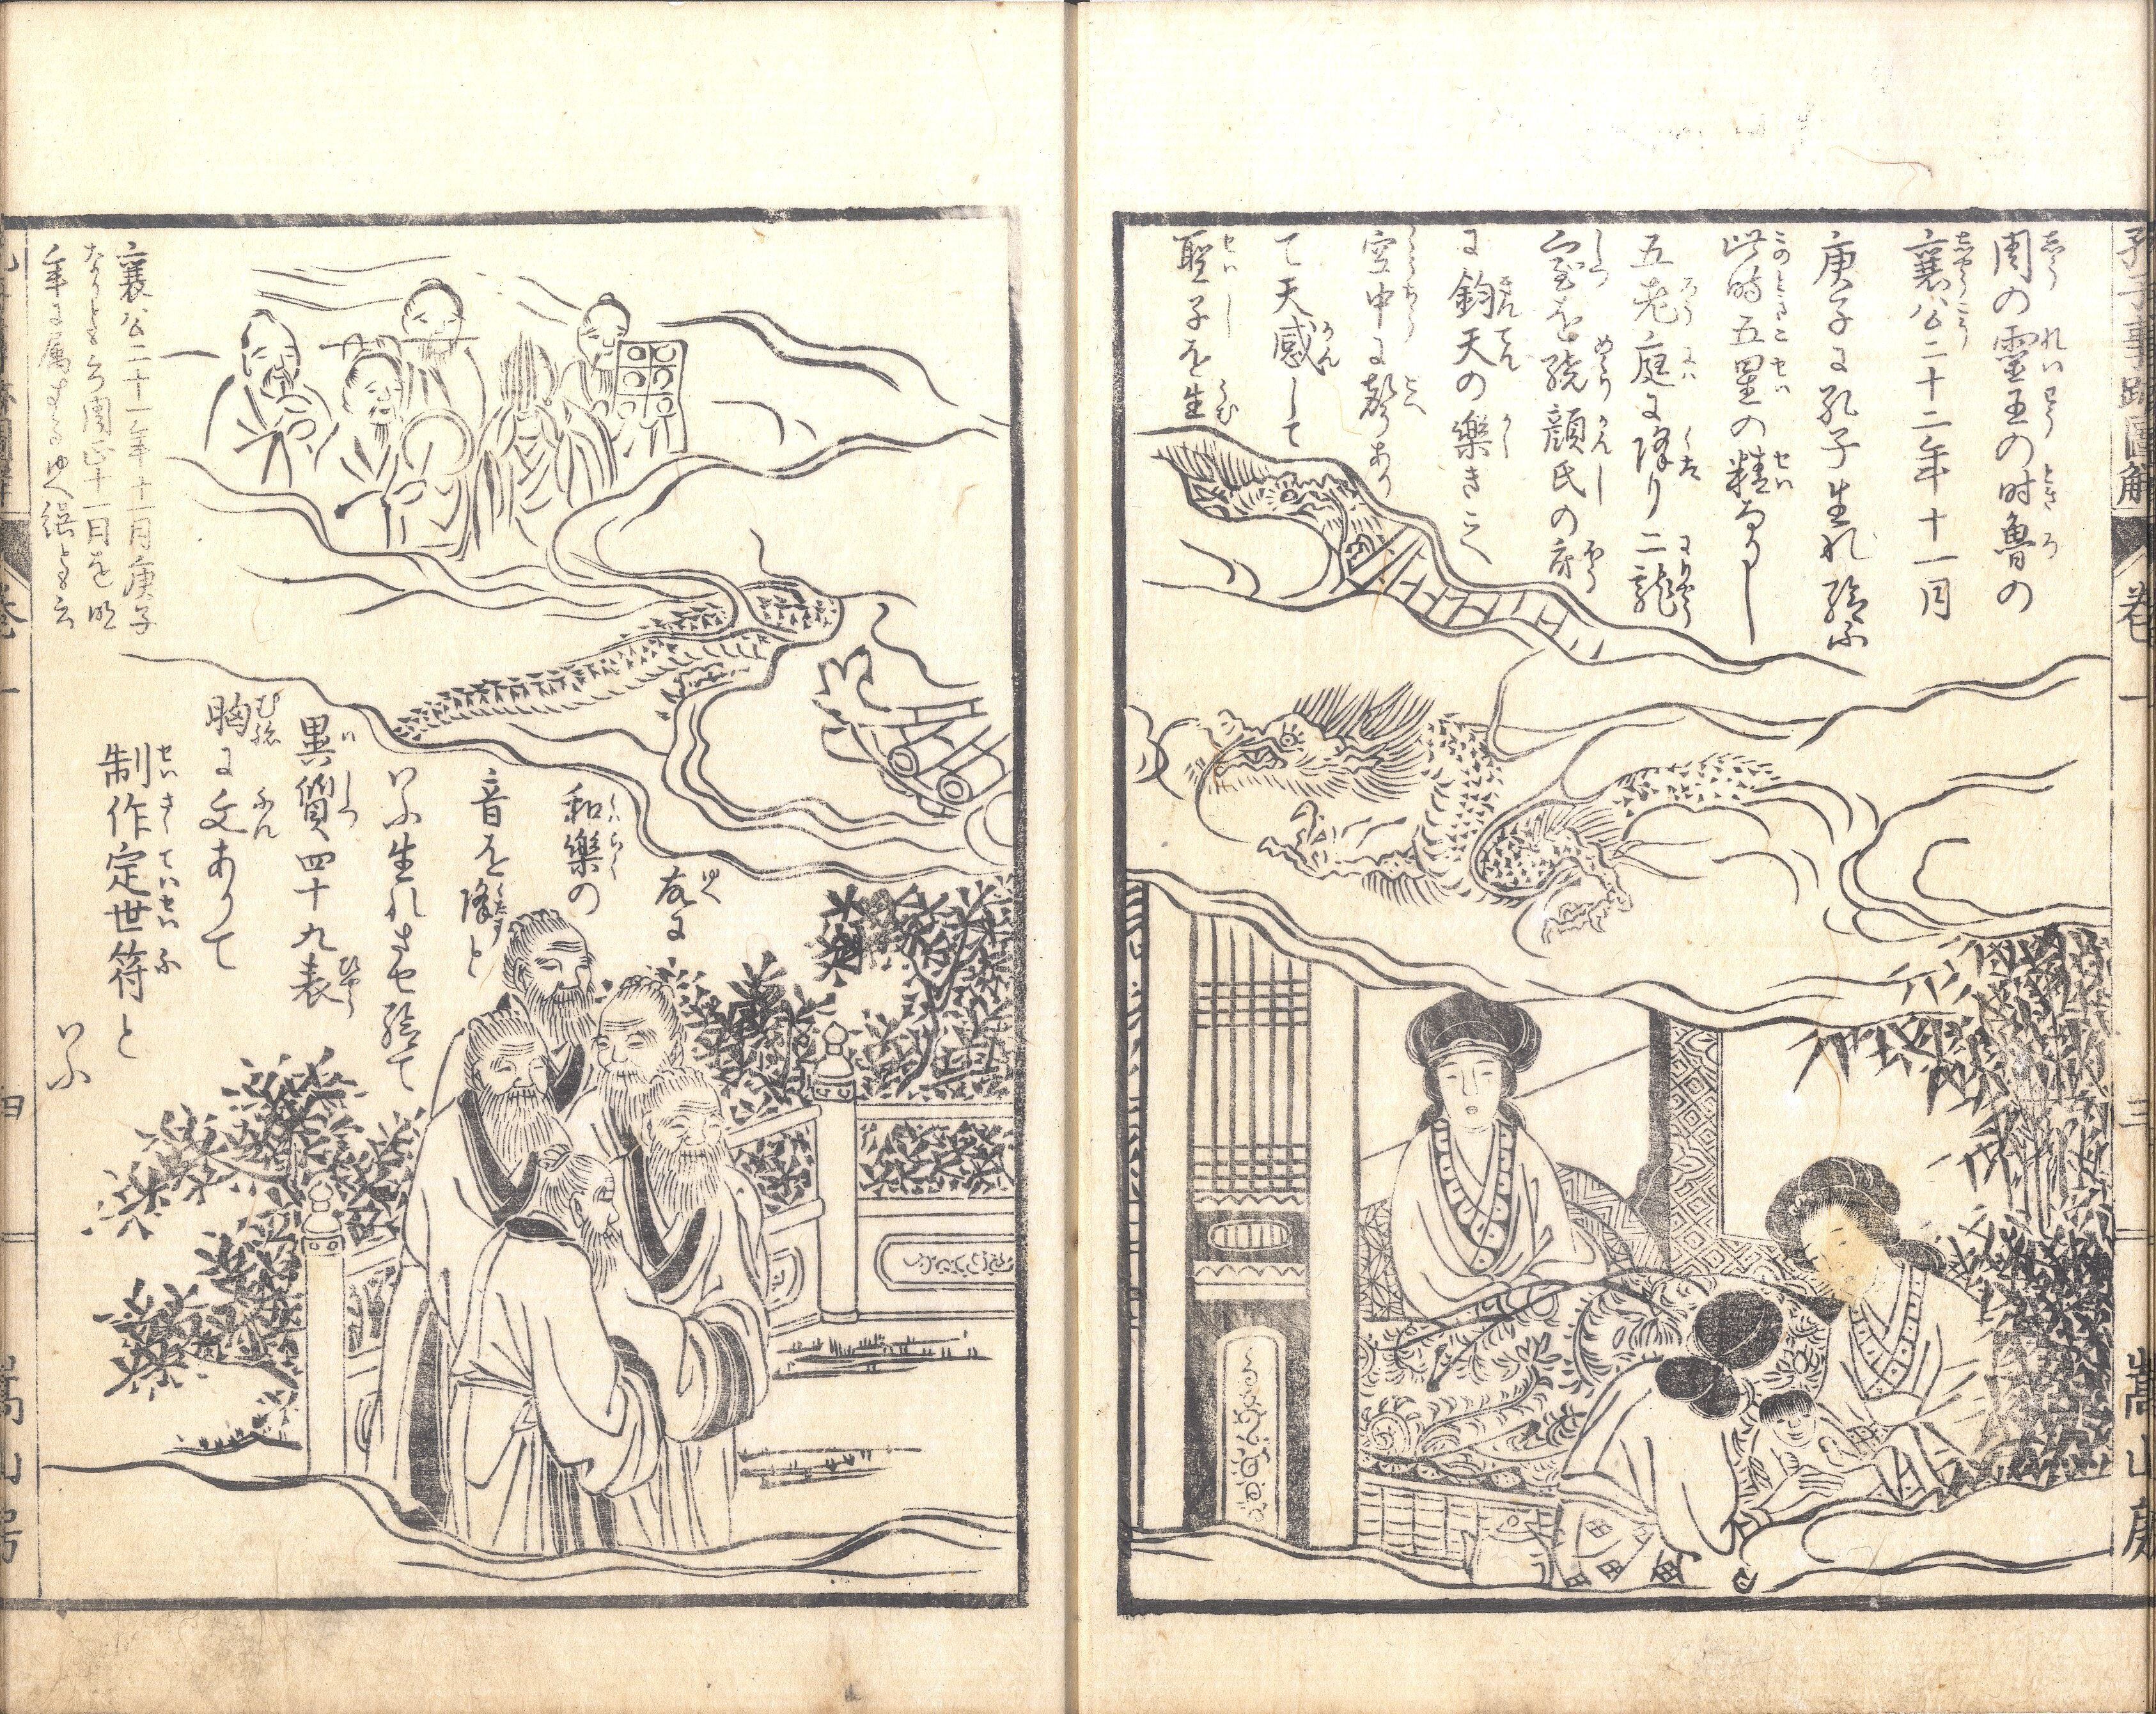 周の霊王の时魯の
襄公二十二年十一月
庚子に孔子生れ給ふ
此時五星の精なりし
五老庭に降り二龍
室を繞顔氏の房
に鈞天の樂きこへ
空中に聲あり
て天感して
聖子を生
故に
和樂の
音を降と
いふ生れさせ給て
異質四十九表
胸に文ありて
制作定世符と
いふ
襄公二十一年十一月庚子
なりとも云周正十一月を明
年に属する史誤とも云
孔子事跡圖解
巻一
三
嵩山房
巻一
四
嵩山房